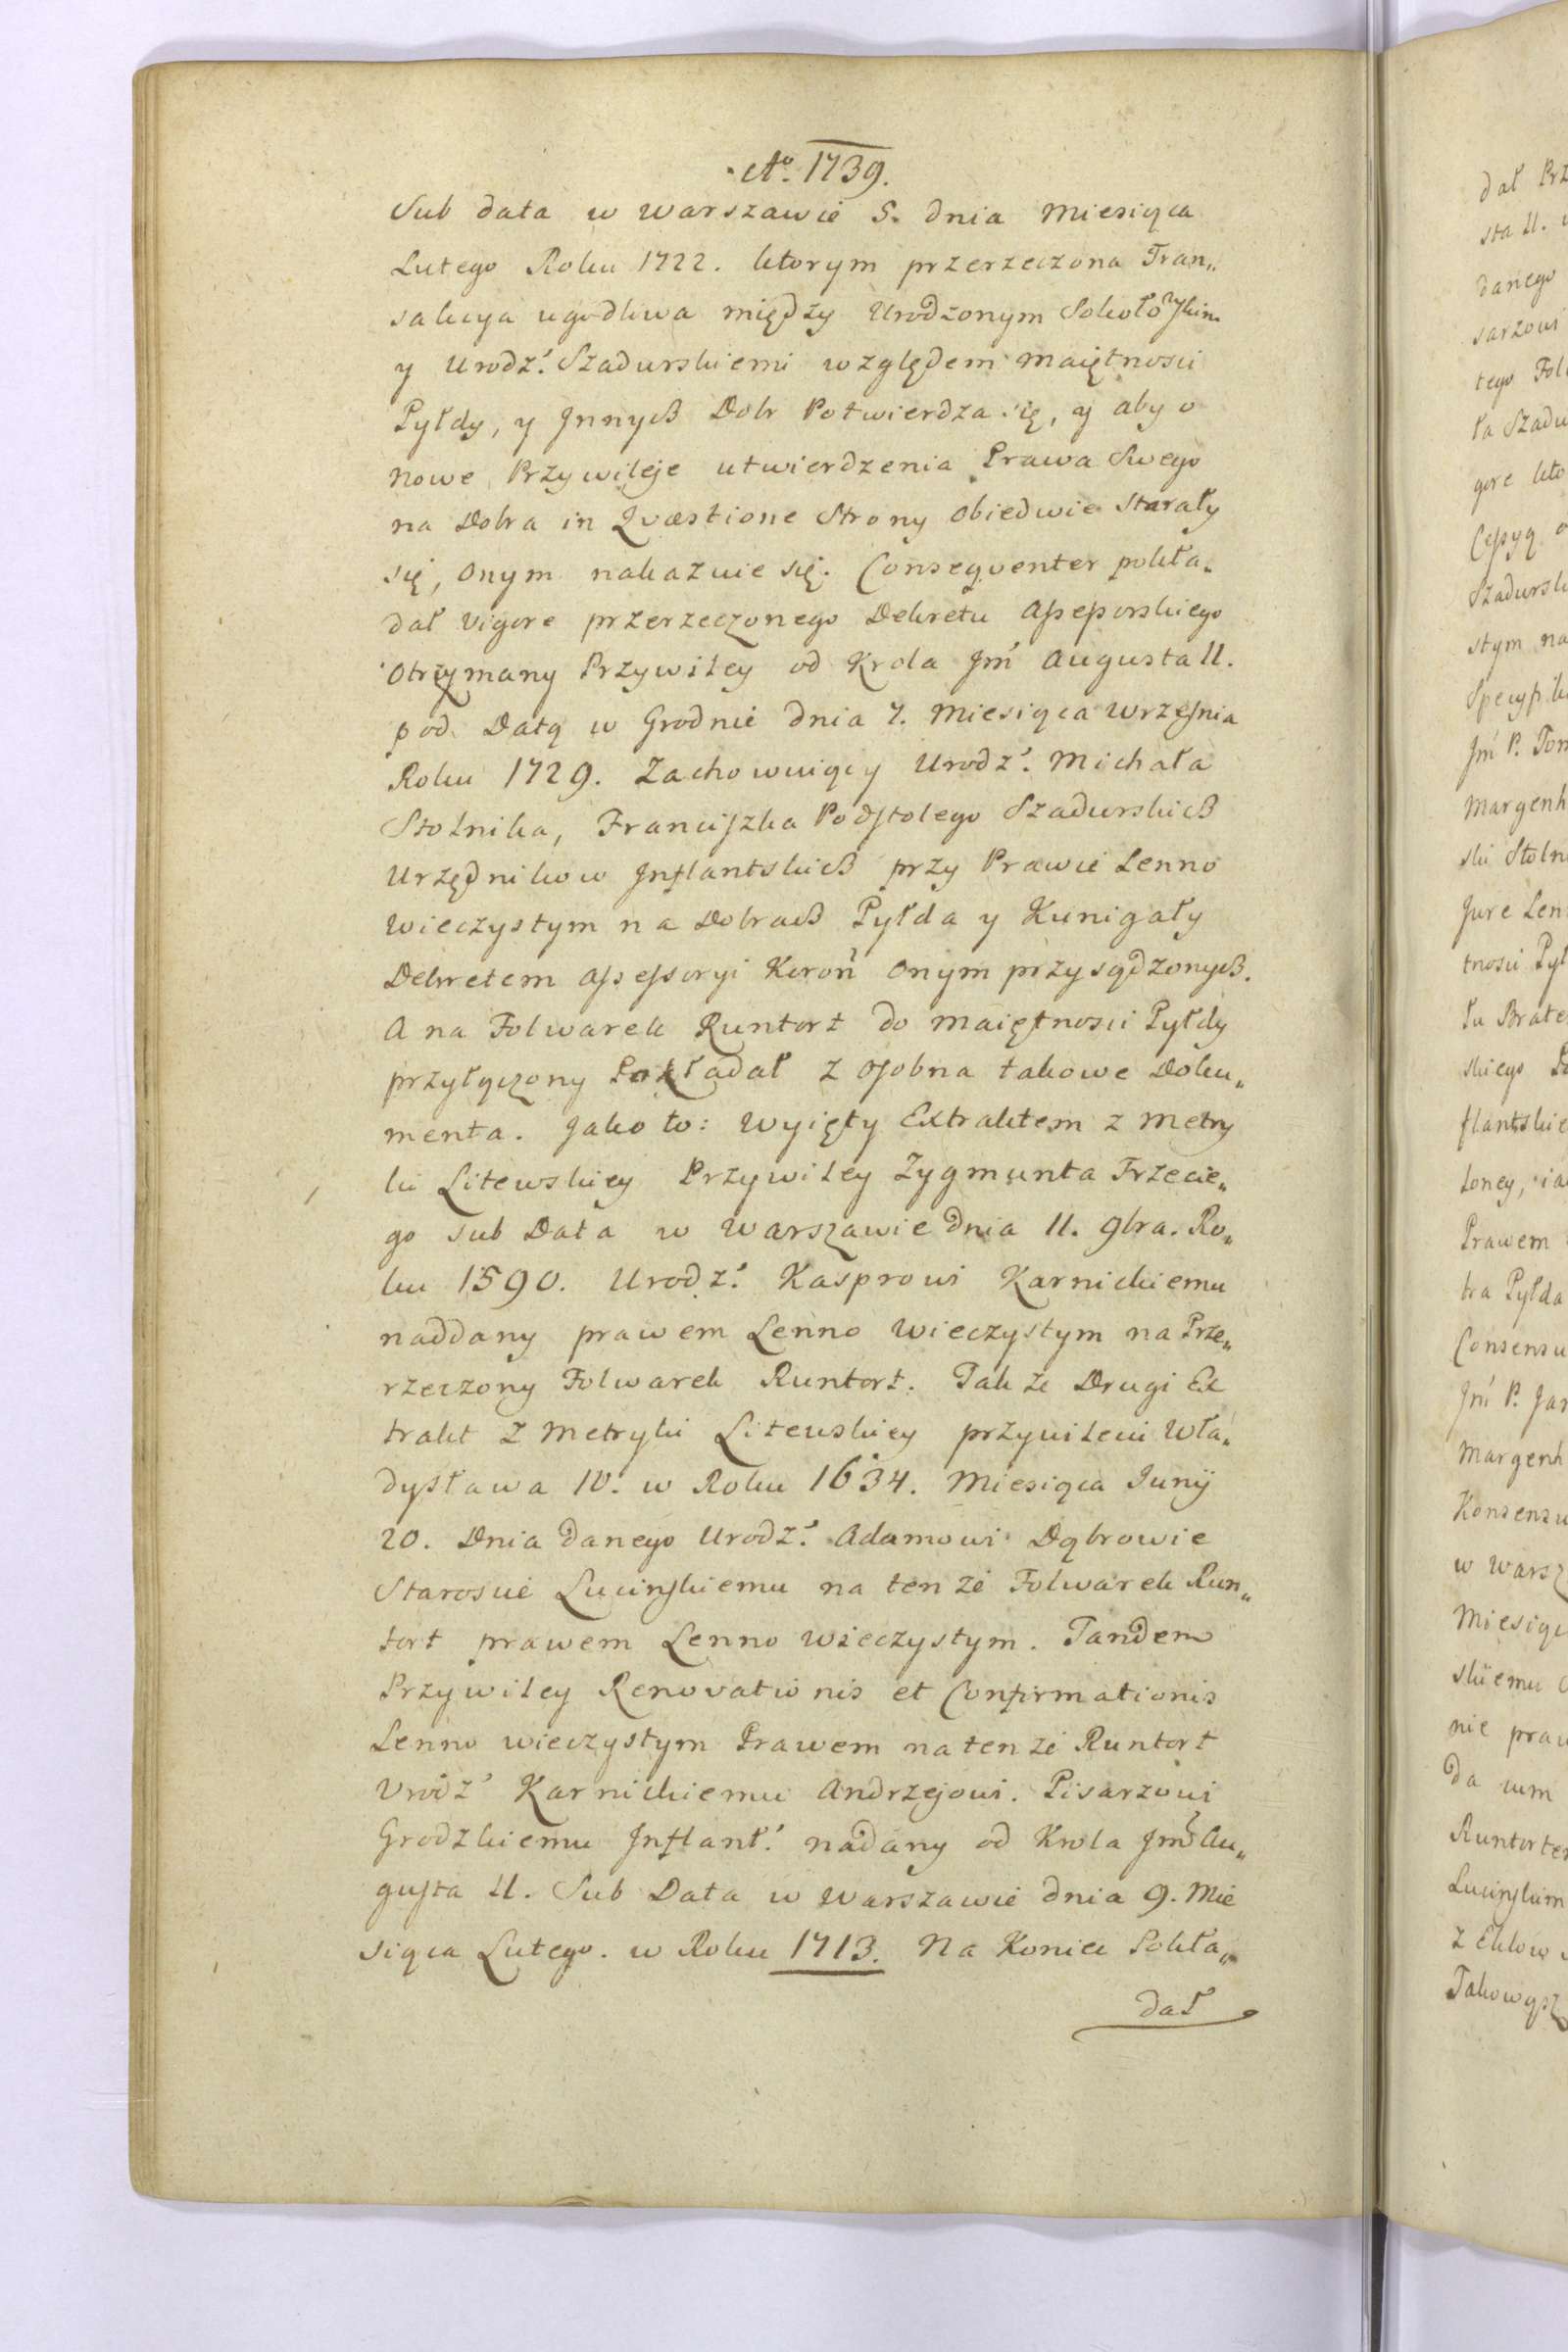 Ao. 1739.
Sub data w Warszawie 5. dnia Miesiąca
Lutego Roku 1722. ktorym przerzeczona Tran„
sakcya ugodliwa między Urodzonym Sokoło
y Urodz: Szadurskiemi względem maiętnosci
Pyłdy, y Jnnych Dobr Potwierdza się, y aby o
nowe Przywileje utwierdzenia Prawa Swego
na Dobra in Qvæstione Strony obiedwie starały
się, onym nakazuie się. Conseqventer pokła„
dał vigore przerzeczonego Dekretu Assessorskiego
Otrzymany Przywiley od Krola Jm̃ Augusta II.
pod Datą w Grodnie dnia 7. Miesiąca Września
Roku 1729. Zachowuiący Urodz: Michała
Stolnika, Franciszka Podstolego Szadurskich
Urzędnikow Jnflantskich przy Prawie Lenno
Wieczystym na Dobrach Pyłda y Kunigały
Dekretem Assessoryi Koroñ Onym przysądzonych.
A na Folwarek Runtort do maiętnosci Pyłdy
przyłączony Pokładał z osobna takowe Doku„
menta. Jako to: Wyięty Extraktem z Metry
ki Litewskiey Przywiley Zygmunta Trzecie„
go sub Data w Warszawie dnia 11. 9bra. Ro„
ku 1590. Urodz: Kasprowi Karnickiemu
naddany prawem Lenno Wieczystym na Prze„
rzeczony Folwarek Runtort. Tak że Drugi Ex
trakt z Metryki Litewskiey przywileiu Wła„
dysława IV. w Roku 1634. Miesiąca Junÿ
20. Dnia danego Urodz: Adamowi Dąbrowie
Staroscie Lucinskiemu na ten że Folwarek Run„
tort prawem Lenno wieczystym. Tandem
Przywiley Renovationis et Confirmationis
Lenno wieczystym Prawem na ten że Runtort
Vrodz: Karnickiemu Andrzejowi. Pisarzowi
Grodzkiemu Jnflant: nadany od Krola Jm̃ Au„
gusta II. Sub Data w Warszawie dnia 9. Mie
siąca Lutego. w Roku 1713. Na Koniec Pokła„
dał